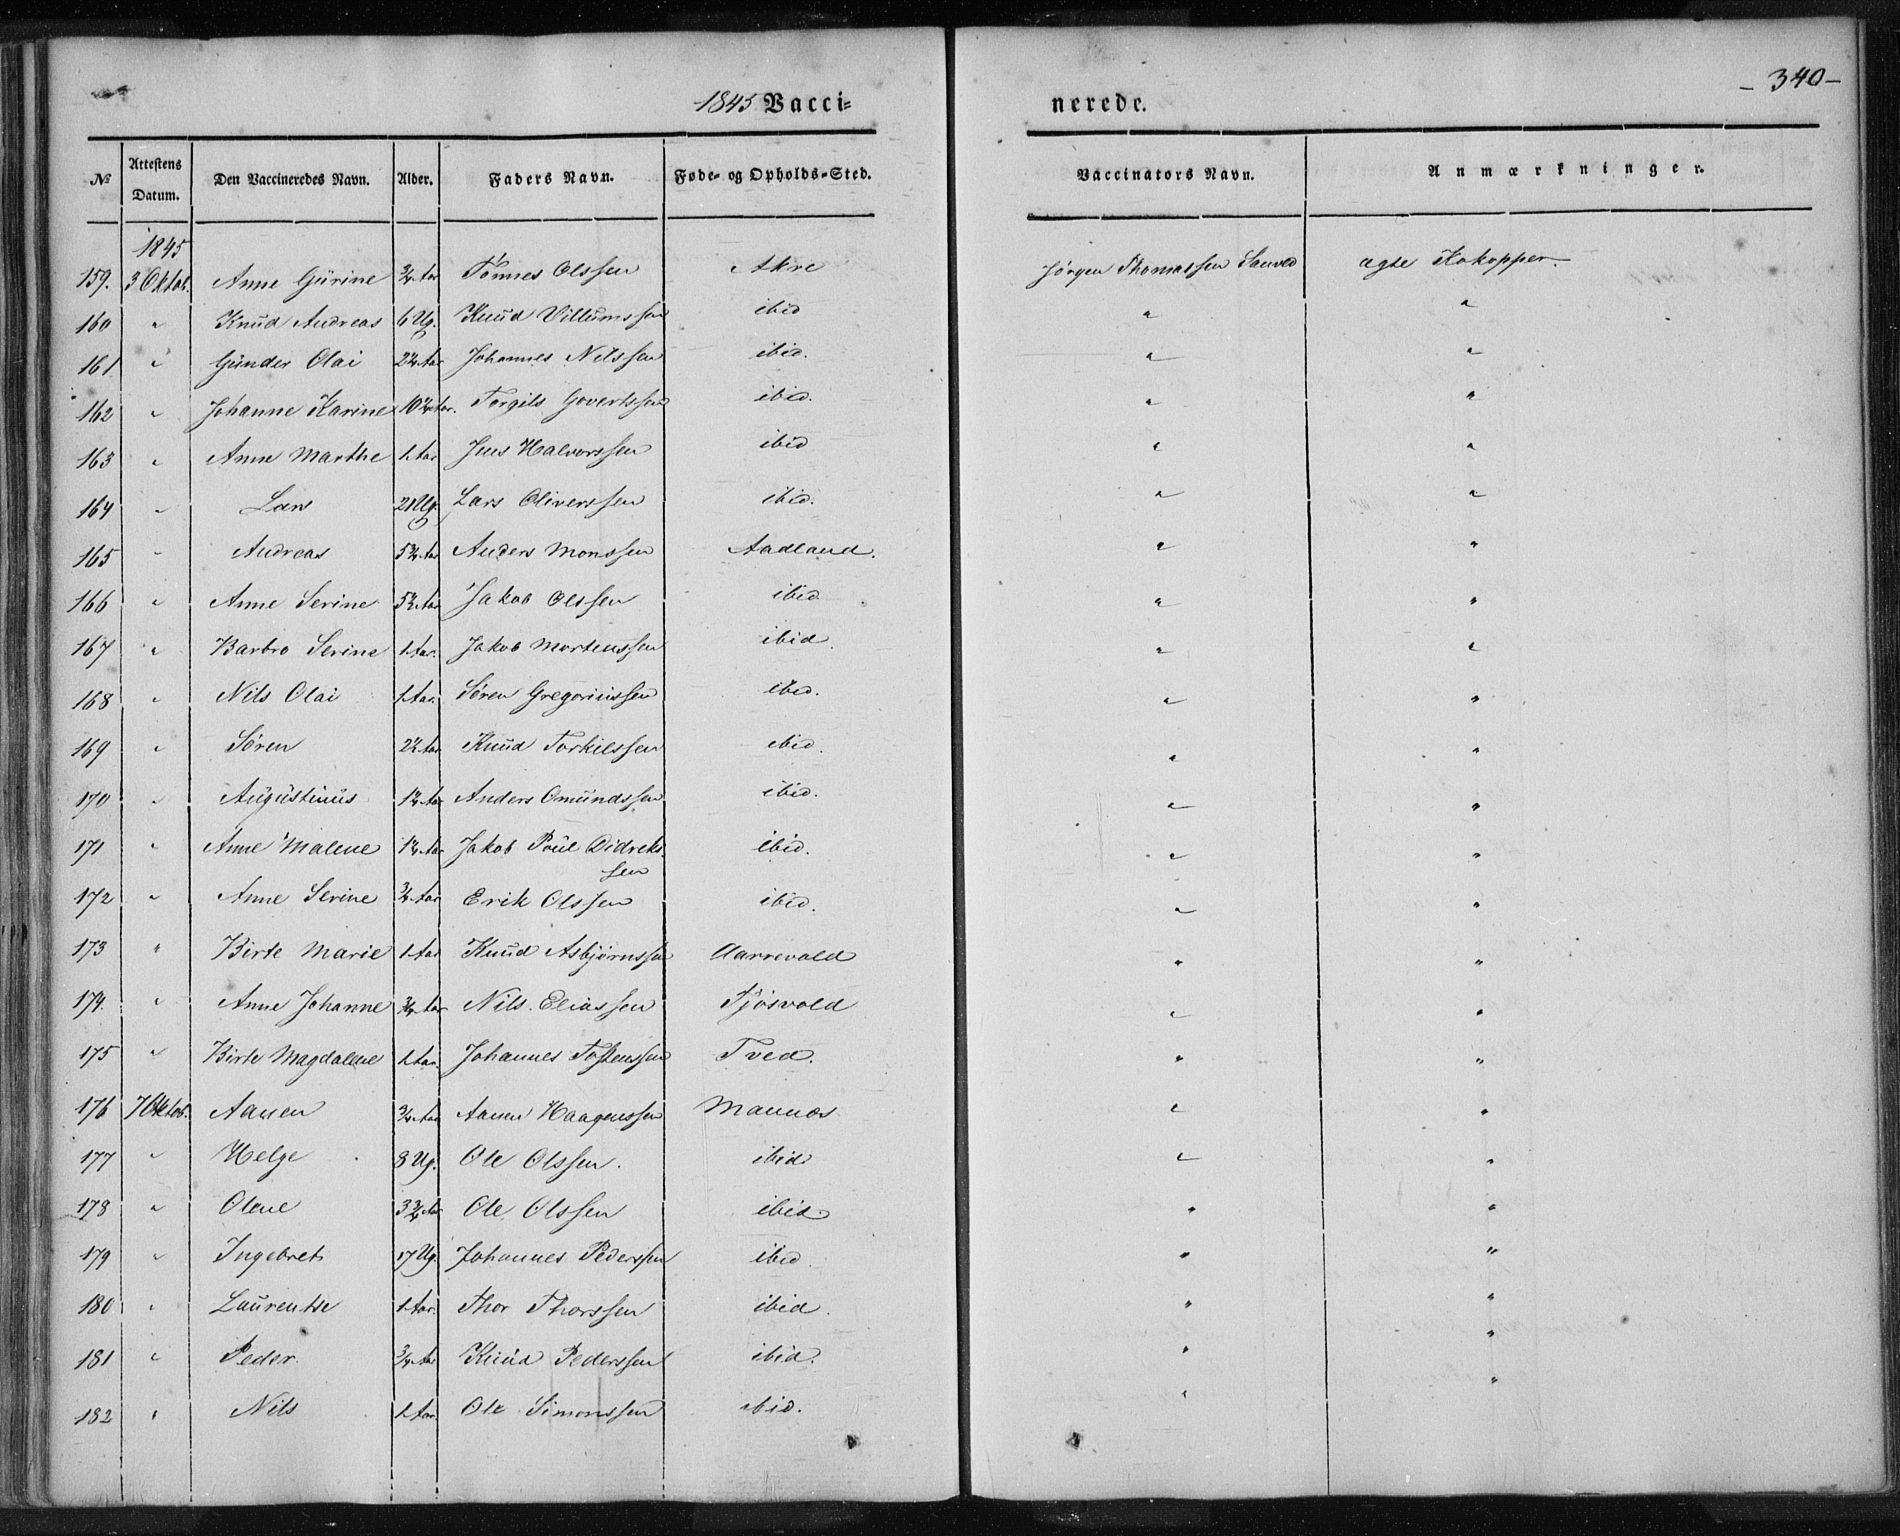 1845 Vacci=
nerede.
- 340 -
No Attestens Datum. Den Vaccineredes Navn. Alder. Faders Navn. Føde- og Opholds-Sted. Vaccinators Navn. Anmærkninger.
1845
159. 3 Oktob. Anne Gurine ¾ Aar Tönnes Olssen Akre Jørgen Thomassen Sanved ægte Kokopper.
160 " Knud Andreas 6 Ug. Knud Villumssen ibid " "
161 " Gunder Olai 2¼ Aar Johannes Nilssen ibid. " "
162 " Johanne Karine 10¼ Aar. Torgils Govertssen ibid. " "
163 " Anne Marthe 1 Aar Jens Halvorssen ibid " "
164 " Lars 21 Ug. Lars Oliverssen ibid. " "
165 " Andreas 5¾ Aar Anders Monssen Aadland. " "
166 " Anne Serine 5½ Aar Jakob Olssen ibid " "
167 " Barbro Serine 1 Aar. Jakob Mortenssen ibid. " "
168 " Nils Olai 1 Aar. Søren Gregoriussen ibid. " "
169 " Søren 2½ Aar Knud Torkilssen ibid. " "
170 " Augustinus 1¼ Aar Anders Omundssen ibid. " "
171 " Anne Malene 1¼ Aar Jakob Poul Didreks
sen ibid. " "
172 " Anne Serine ¾ Aar Erik Olssen ibid. " "
173 " Birte Marie 1 Aar Knud Asbjørnssen Aarrevald " "
174. " Anne Johanne ¾ Aar Nils Eliassen Tjøsvold " "
175 " Birte Magdalene 1 Aar. Johannes Tostenssen Tved. " "
176 7 Oktob. Aanen ¾ Aar Aanen Haagenssen Mannæs " "
177 " Helge 8 Ug. Ole Olssen. ibid " "
178 " Olene 3¾ Aar Ole Olssen ibid " "
179 " Ingebret 17 Ug. Johannes Pederssen ibid " "
180 " Laurentse 1 Aar. Thor Thorssen ibid. " "
181 " Peder. ¾ Aar Knud Pederssen ibid. " "
182 " Nils 1 Aar. Ole Simonssen ibid. " "